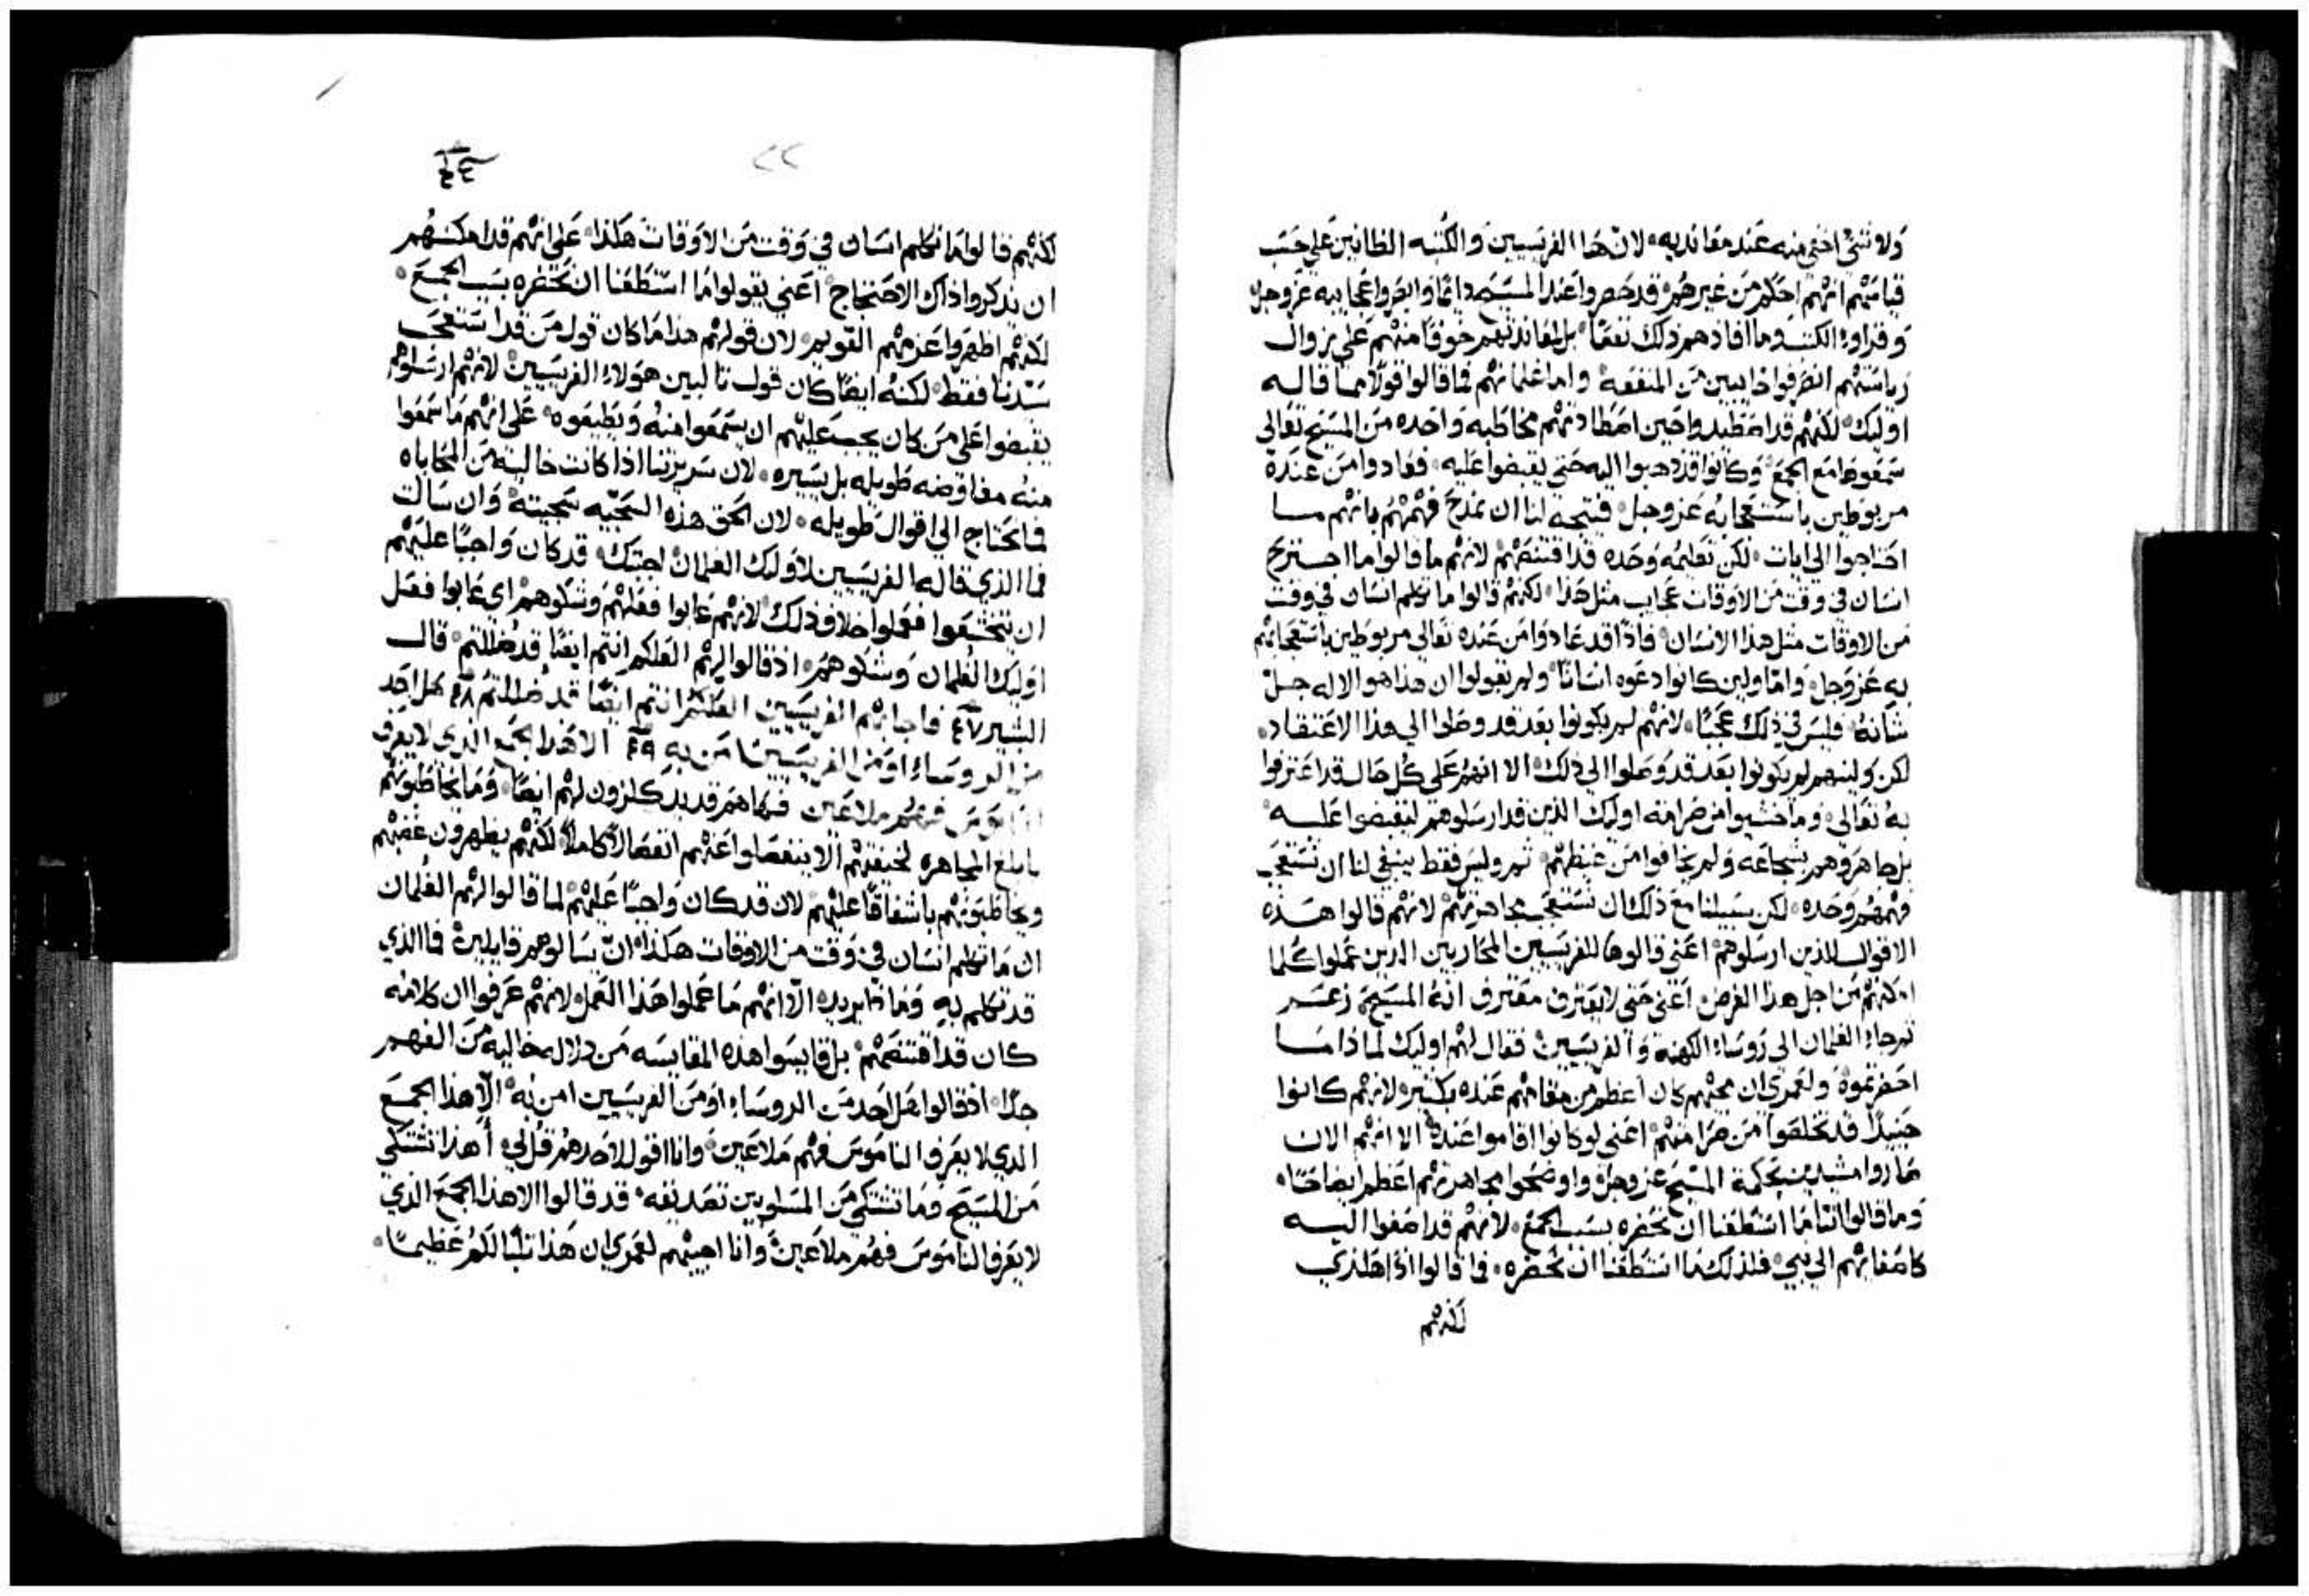 ولا شي اخفي منه عند معانديه لان هذا الفريسيين والكتبه الظانين علي حسب
قيامتهم انهم احكم من غيرهم قد حضروا عند المسيح دايما وابصروا عجايبه عز وجل
وقراوا الكتب وما افادهم ذلك نفعا بل لمعاندتهم خوفا منهم علي زوال
رياستهم انصرفوا خايبين من المنفعه واما غلمانهم فما قالوا قولا مما قاله
اوليك لكنهم قد اصطيدوا حين اصطادتهم مخاطبه واحده من المسيح تعالي
سمعوها مع الجمع وكانوا قد ذهبوا اليه حتي يقبضوا عليه فعادوا من عنده
مربوطين باستعجابه عز وجل فيتجه لنا ان نمدح فهمهم بانهم ما
احتاجوا الي ايات لكن تعليمه وحده قد اقتنصهم لانهم ما قالوا ما اجترح
انسان في وقت من الاوقات عجايب مثل هذا لكنهم قالوا ما تكلم انسان في وقت
من الاوقات مثل هذا الانسان فاذا قد عادوا من عنده تعالي مربوطين باستعجابهم
به عز وجل واما ولين كانوا دعوه انسانا ولم يقولوا ان هذا هو الاله جل
شانه فليس في ذلك عجبا لانهم لم يكونوا بعد قد وصلوا الي هذا الاعتقاد
لكن ولينهم لم يكونوا بعد قد وصلوا الي ذلك الا انهم علي كل حال قد اعترفوا
به تعالي وما خشيوا من صرامة اوليك الذين قد ارسلوهم ليقبضوا عليه
بل جاهروهم بشجاعه ولم يخافوا من غيظهم ثم وليس فقط ينبغي لنا ان نستعجب
فهمهم وحده لكن سبيلنا مع ذلك ان نستعجب مجاهرتهم لانهم قالوا هذه
الاقوال للذين ارسلوهم اعني قالوها للفريسيين المحاربين الذين عملوا كلما
امكنهم من اجل هذا الغرض اعني حتي لا يعترف معترف انه المسيح زعم
ثم جاء الغلمان الي روساء الكهنة والفريسيين فقال لهم اوليك لماذا ما
احضرتموه ولعمري ان مجيهم كان اعظم من مقامهم عنده بكثير لانهم كانوا
حينيذ قد تخلصوا من صرامتهم اعني لو كانوا اقاموا عنده الا انهم الان
صاروا مشيدين بحكمة المسيح عز وجل واوضحوا مجاهرتهم اعظم ايضاحا
وما قالوا اننا ما استطعنا ان نحضره بسبب الجمع لانهم قد اصغوا اليه
كاصغايهم الي نبي فلذلك ما استطعنا ان نحضره فما قالوا اذا هكذي
لكنهم
٢٢
لكنهم قالوا ما تكلم انسان في وقت من الاوقات هكذا علي انهم قد امكنهم
ان يذكروا ذاك الاحتجاج اعني يقولوا ما استطعنا ان نحضره بسبب الجمع
لكنهم اظهروا عزمهم القويم لان قولهم هذا ما كان قول من قد استعجب
سيدنا فقط لكنه ايضا كان قول ثالبين هولاء الفريسيين لانهم ارسلوهم
يقبضوا علي من كان يجب عليهم ان يسمعوا منه ويطيعوه علي انهم ما سمعوا
منه مفاوضه طويله بل يسيره لان سريرتنا اذا كانت خاليه من المحاباه
فما تحتاج الي اقوال طويله لان الحق هذه السجيه سجيته وان سالت
فما الذي قاله الفريسيين لاوليك الغلمان اجبتك قد كان واجبا عليهم
ان يتخشعوا فعملوا خلاف ذلك لانهم عابوا فعلهم وشكوهم اي عابوا فعل
اوليك الغلمان وشكوهم اذ قالوا لهم العلكم انتم ايضا قد ضللتم قال
البشير ٤٧ فاجابهم الفريسيين العلكم انتم ايضا قد ضللتم ٤٨ هل احد
من الروساء او من الفريسيين امن به ٤٩ الا هذا الجمع الذي لا يعرف
الناموس فهم ملاعين فها هم قد يدكلزون لهم ايضا وما يخاطبونهم
بابلغ المجاهره لخيفتهم الا ينفصلوا عنهم انفصالا كاملا لكنهم يظهرون غضبهم
ويخاطبونهم باشفاقا عليهم لان قد كان واجبا عليهم لما قالوا لهم الغلمان
ان ما تكلم انسان في وقت من الاوقات هكذا ان يسالوهم قايلين فما الذي
قد تكلم به وماذا يريد الا انهم ما عملوا هذا العمل لانهم عرفوا ان كلامه
كان قد اقتنصهم بل قايسوا هذه المقايسه من دلاله خاليه من الفهم
جدا اذ قالوا هل احد من الروساء او من الفريسيين امن به الا هذا الجمع
الذي لا يعرف الناموس فهم ملاعين وانا اقول لاحدهم قل لي أهذا تشتكي
من المسيح وما تشتكي من المسلوبين تصديقه قد قالوا الا هذا الجمع الذي
لا يعرف الناموس فهم ملاعين وانا اجيبهم لعمري ان هذا ثلبا لكم عظيما